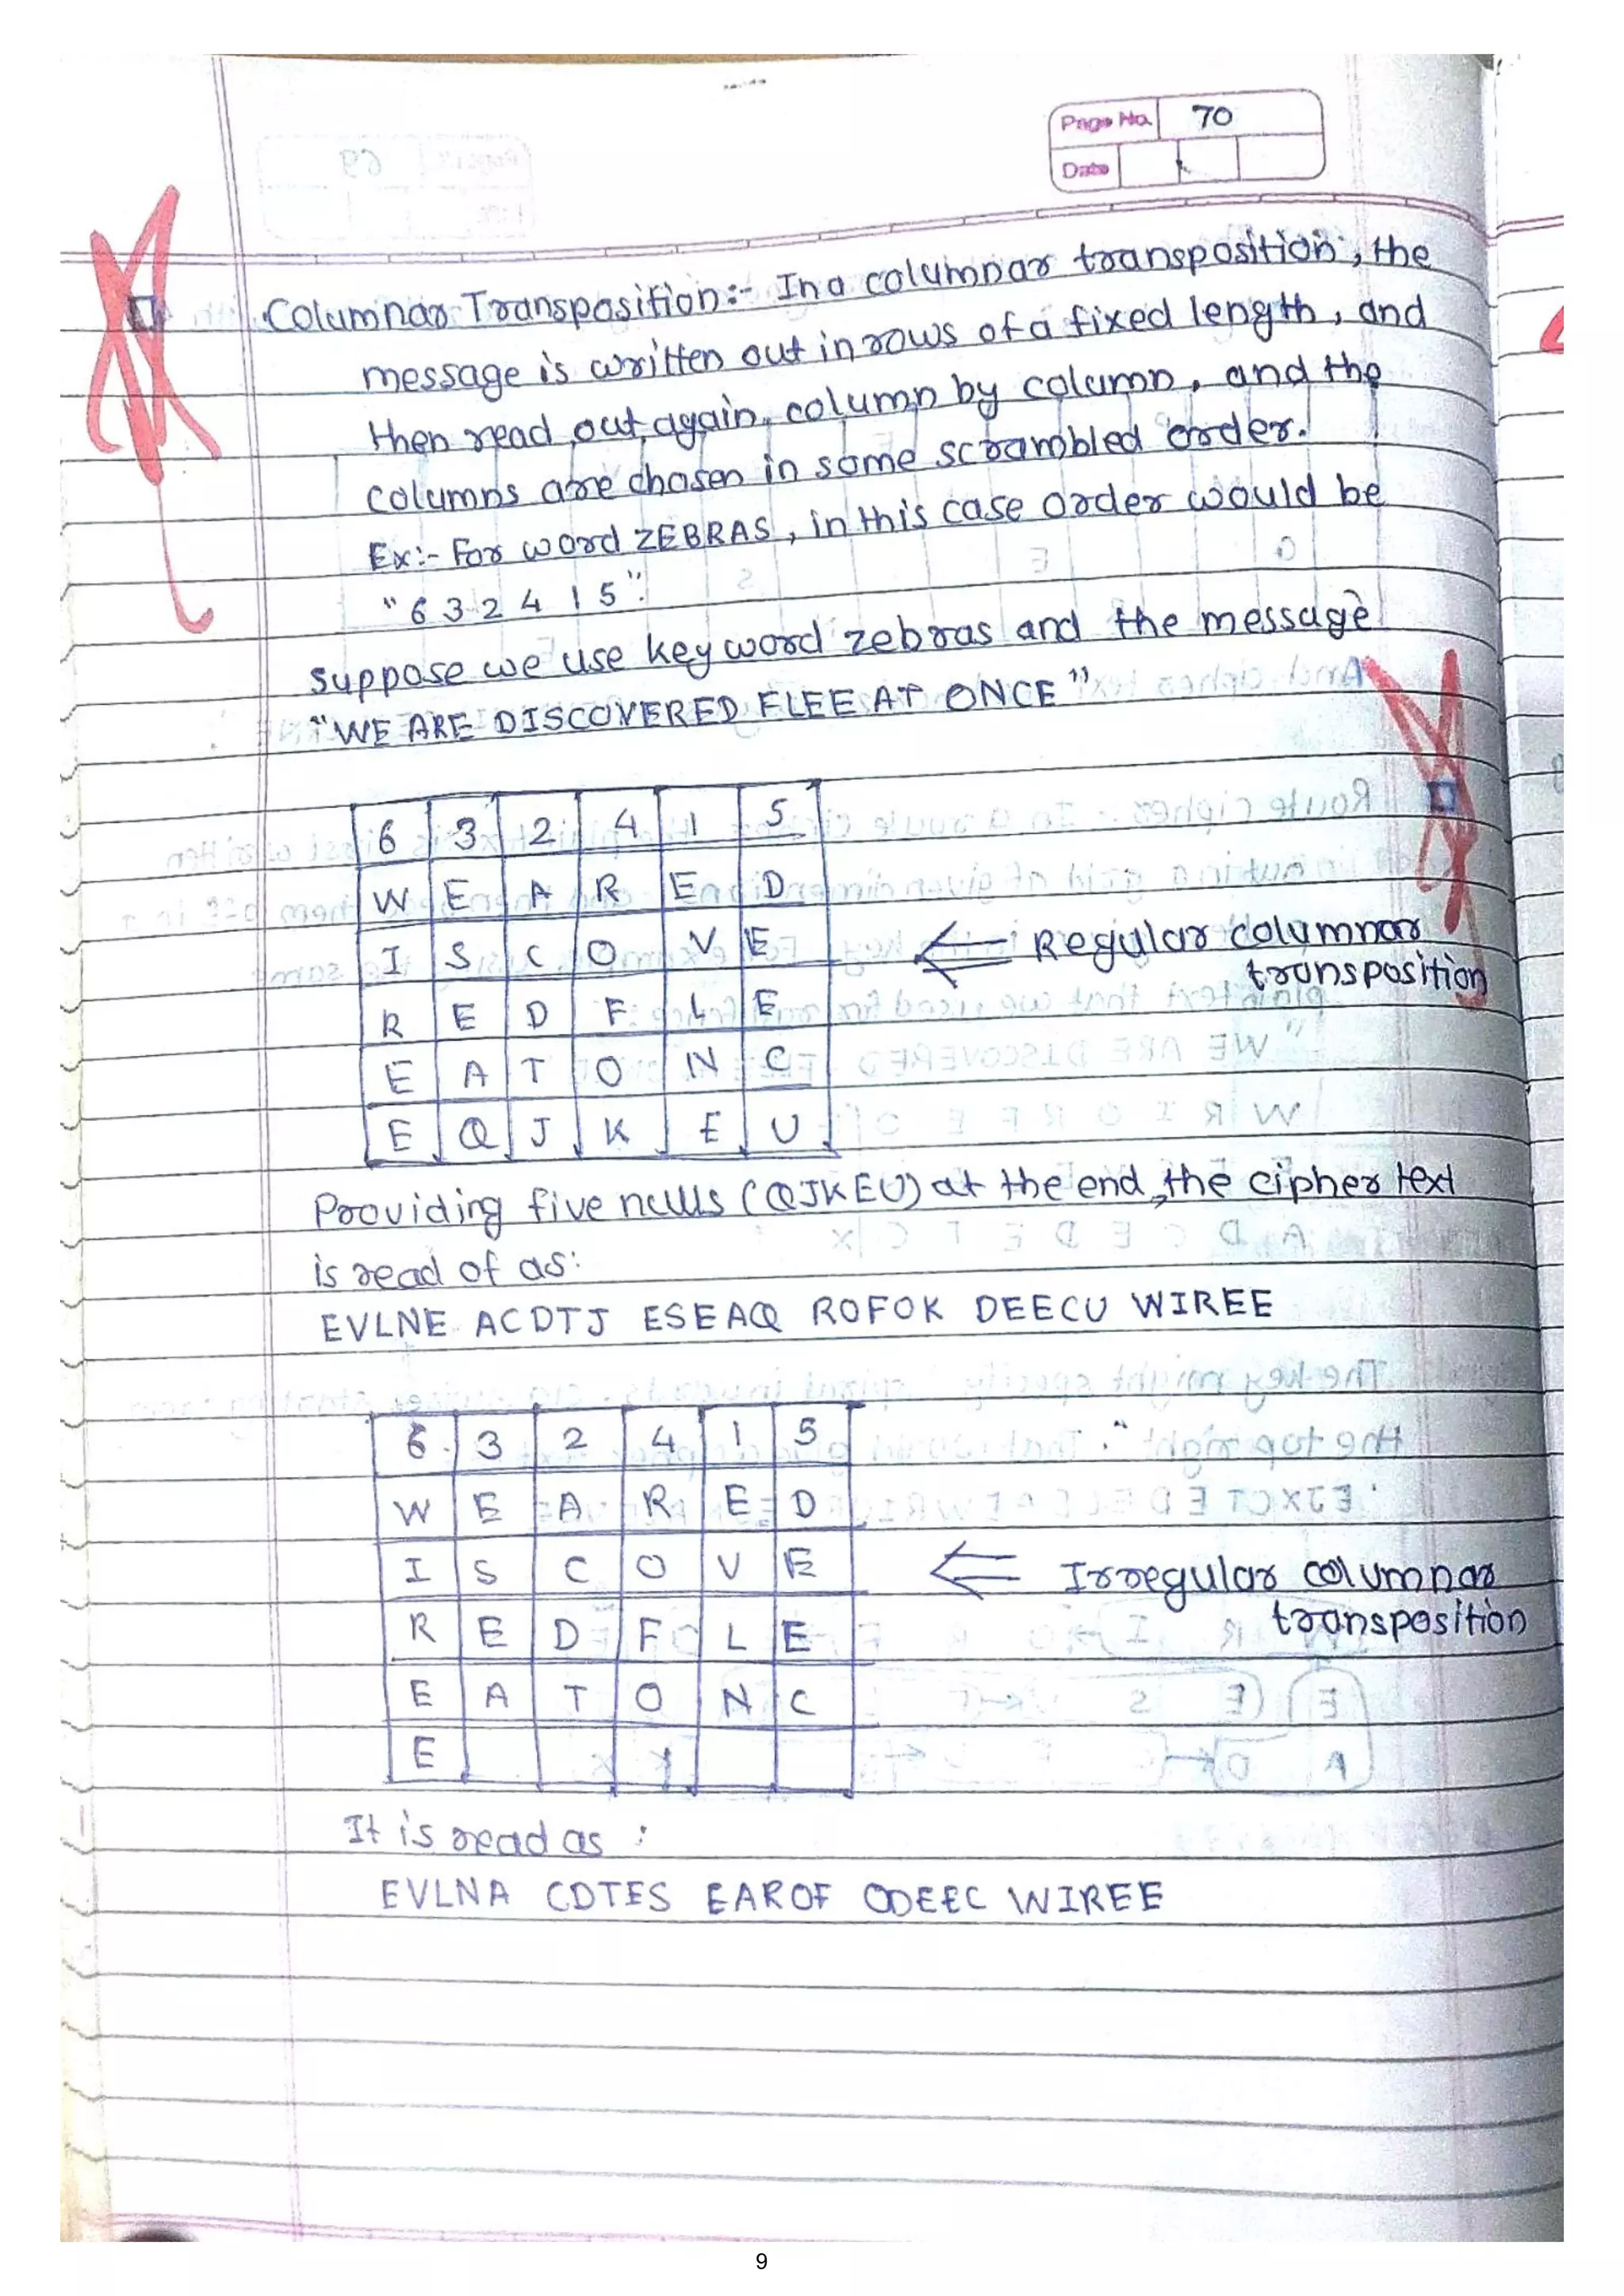 Page No. 70
Date
Columnar Transposition:- In a columnar transposition, the
message is written out in rows of a fixed length, and
then read out again, column by column, and the
columns are chosen in some scrambled order.
Ex:- For word ZEBRAS, in this case order would be
"6 3 2 4 1 5".
suppose we use key word zebras and the message
"WE ARE DISCOVERED FLEE AT ONCE"
6 3 2 4 1 5
W E A R E D
I S C O V E
R E D F L E
E A T O N C
E Q J K E U
← Regular columnar
transposition
Providing five nulls (QJKEU) at the end, the cipher text
is read of as:
EVLNE ACDTJ ESEAQ ROFOK DEECU WIREE
6 3 2 4 1 5
W E A R E D
I S C O V E
R E D F L E
E A T O N C
E
← Irregular columnar
transposition
It is read as :
EVLNA CDTES EAROF ODEEC WIREE
9